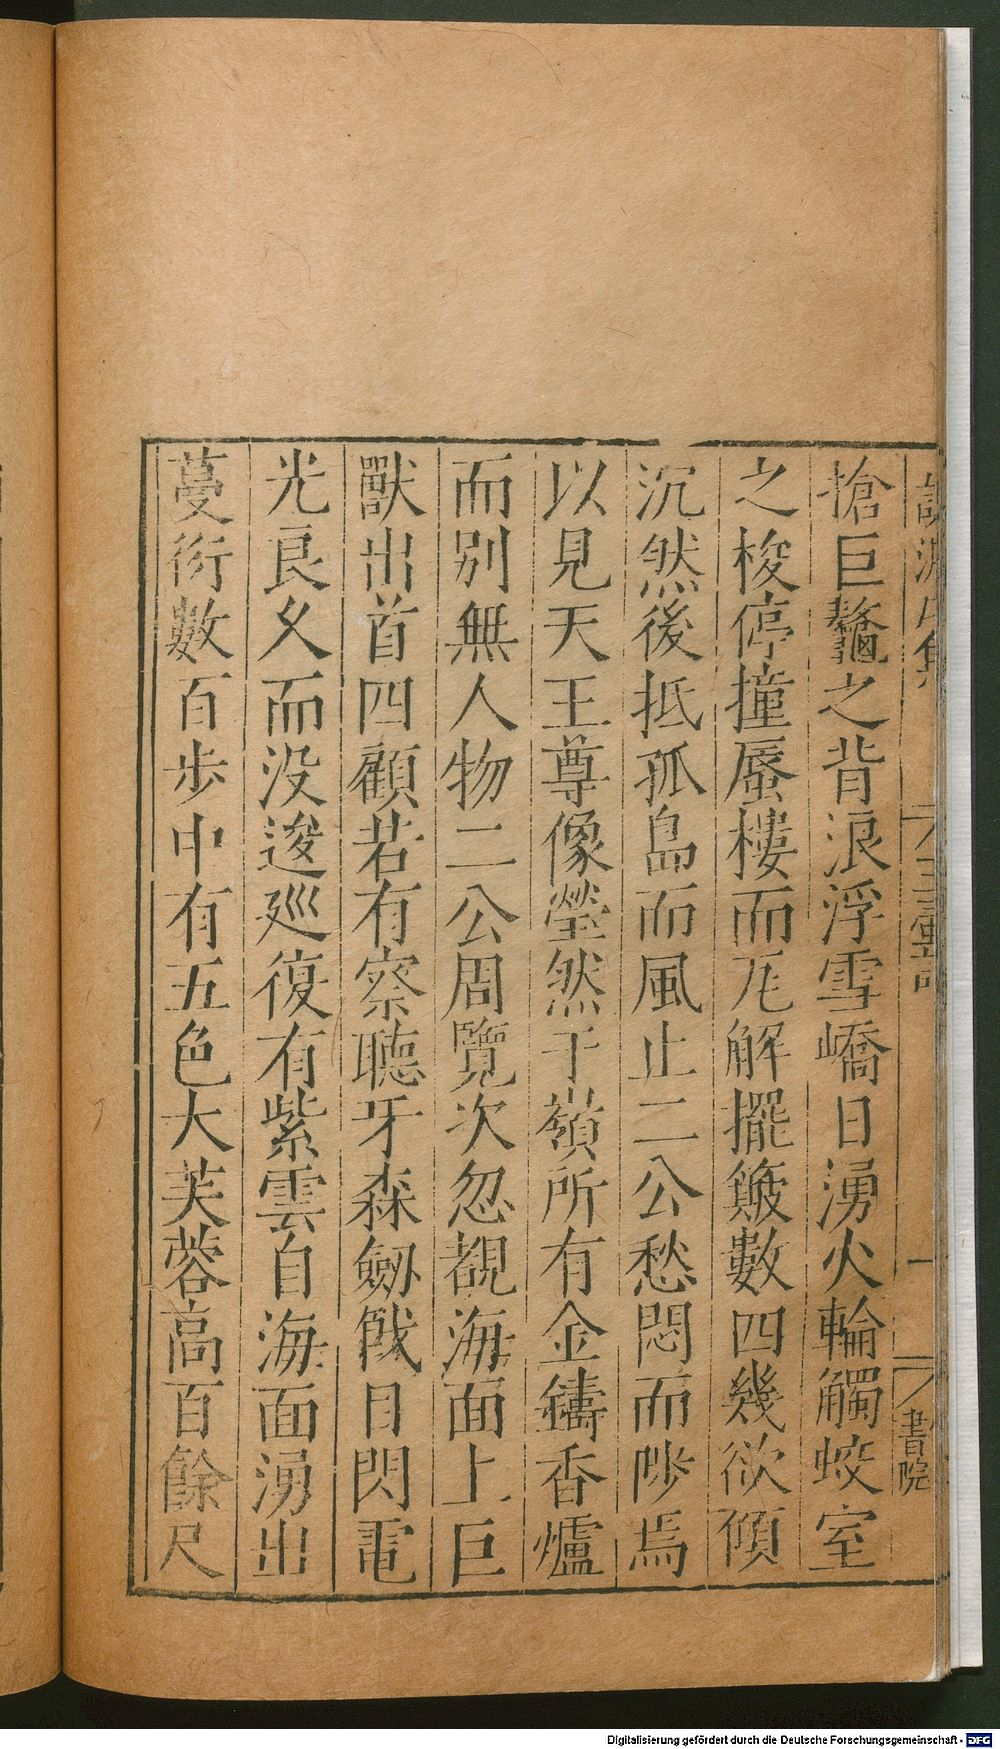 搶巨鼇之背浪浮雪嶠日湧火輪觸蛟室
之梭停撞蜃樓而瓦解擺簸數四幾欲傾
沉然後抵孤島而風止二公愁悶而陟焉
以見天王尊像瑩然于嶺所有金鑄香爐
而別無人物二公周覽次忽覩海面上巨
獸出首四顧若有察聽牙森劒戟目閃電
光良久而没逡廵復有紫雲自海面湧出
蔓衍數百步中有五色大芙蓉高百餘尺
一
書院
Digitalisierung gefördert durch die Deutsche Forschungsgemeinschaft - DFG